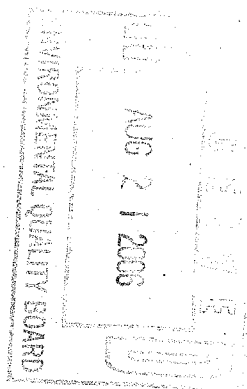 AUG 21 2006
ENVIRONMENTAL QUALITY BOARD